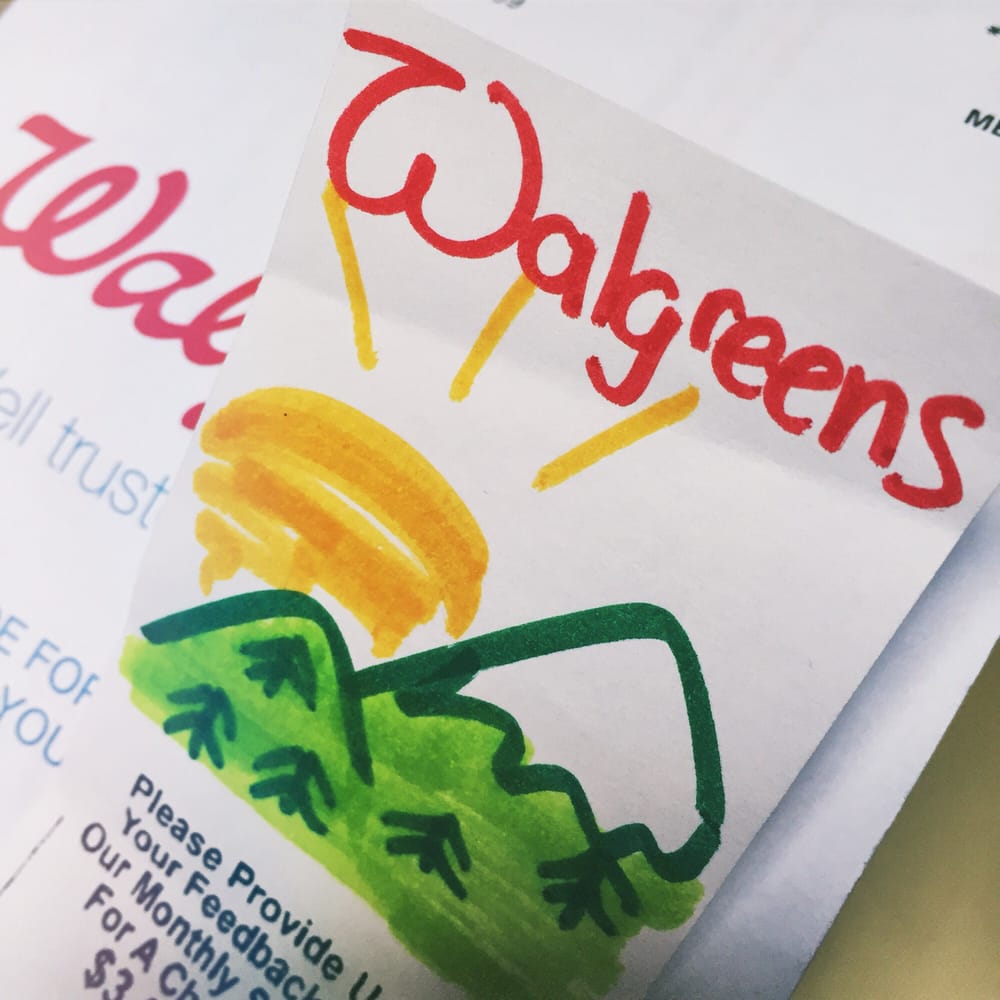 Walgreens
ell trust
E FOR
YOU
Please Provide
Your Feedback
Our Monthly
For A
$3